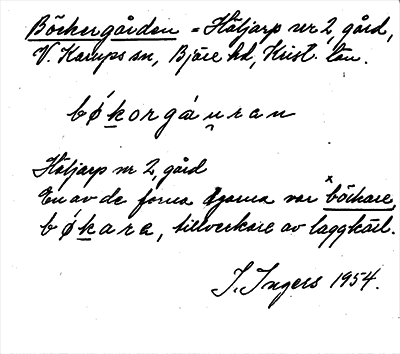 Böckergården = Häljarp nr 2, gård,
V. Karups sn, Bjäre hd, Krist. län.
bǿkorgáu̯ran
Häljarp nr 2, gård
En av de forna ägarna var böckare,
bǿkara, tillverkare av laggkärl.
I. Ingers 1954.